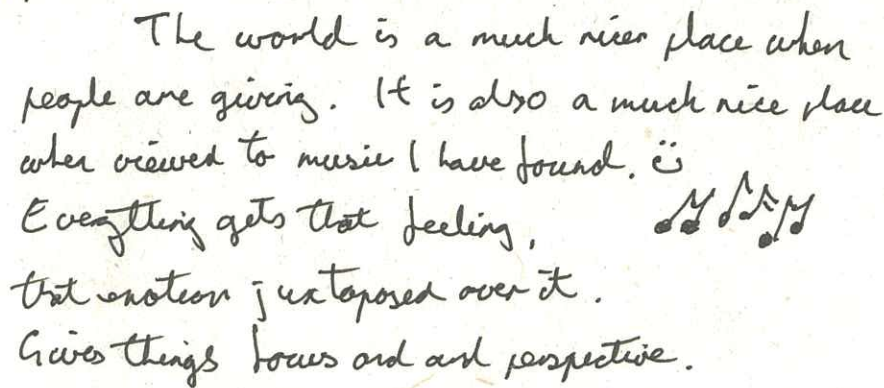 The world is a much nicer place when
people are giving. It is also a much nice place
when viewed to music I have found. ☺
Everything gets that feeling,
that emotion juxtaposed over it.
Gives things focus and and perspective.